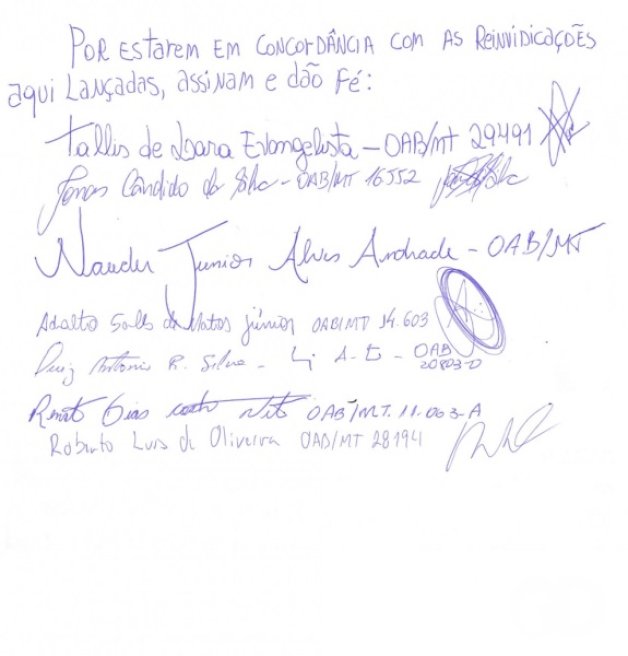 POR ESTAREM EM CONCORDÂNCIA COM AS REINVIDICAÇÕES
aqui LANÇADAS, assinam e dão Fé:
Tallis de Lara Evangelista - OAB/MT 29491
Jonas Cândido da Silva - OAB/MT 16552
Nauder Junior Alves Andrade - OAB/MT
Adalto Salles de Matos júnior OAB/MT 14.603
Luiz Antonio R. Silva - OAB
20803-O
Renato Dias Neto OAB/MT. 11.063-A
Roberto Luis de Oliveira OAB/MT 28194